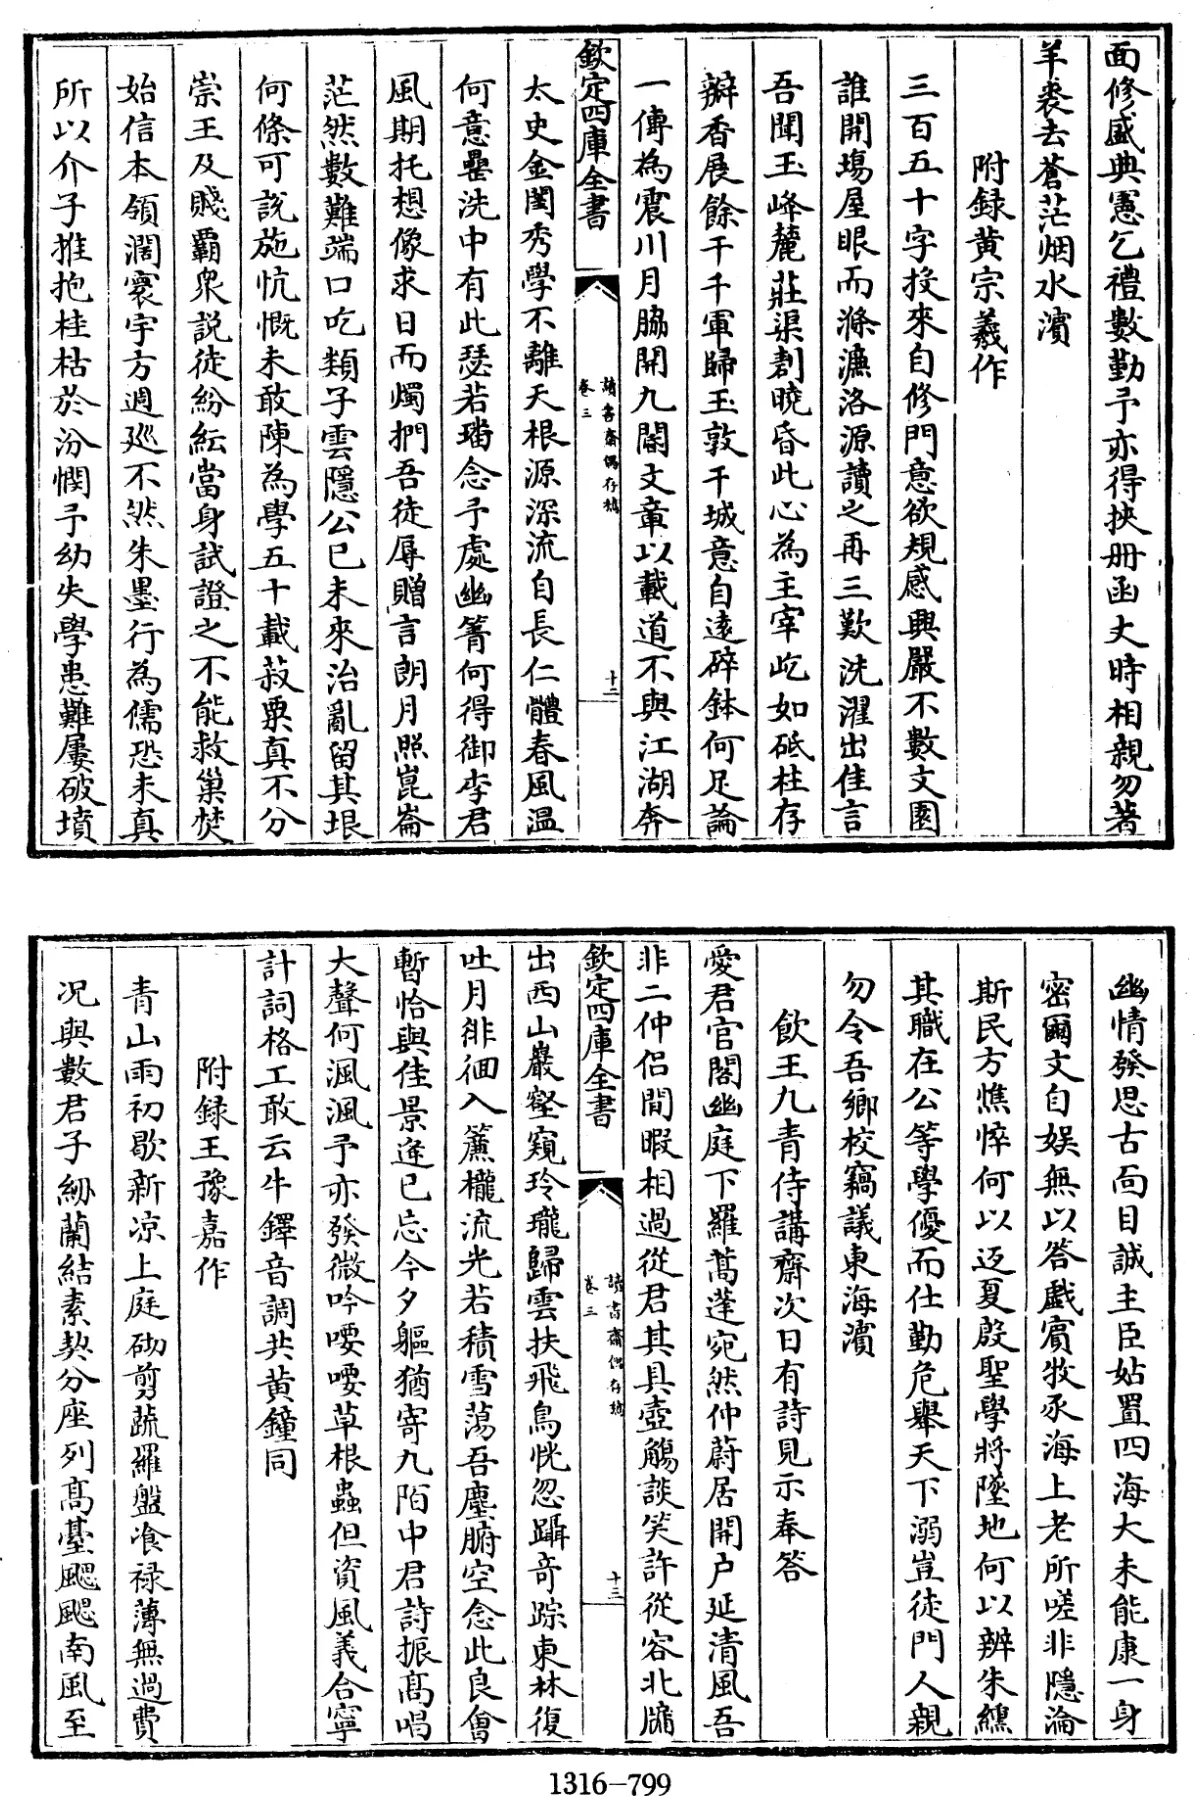 面修盛典憲乞禮數勤予亦得挾册函丈時相親勿著
羊裘去蒼茫烟水濱
附録黄宗羲作
三百五十字投來自修門意欲規感興嚴不數文園
誰開塲屋眼而滌濂洛源讀之再三歎洗濯出佳言
吾聞玉峰麓莊渠割曉昏此心為主宰屹如砥柱存
辦香展餘干千軍歸玉敦千城意自遠碎鉢何足論
一傳為震川月脇開九閽文章以載道不與江湖奔
欽定四庫全書
讀書齋偶存稿
卷三
十二
太史金閨秀學不離天根源深流自長仁體春風温
何意罍洗中有此瑟若璠念予處幽篝何得御李君
風期托想像求日而燭捫吾徒辱贈言朗月照崑崙
茫然數難端口吃類子雲隱公已未來治亂留其垠
何條可說施忼慨未敢陳為學五十載菽粟真不分
崇王及賤霸衆説徒紛紜當身試證之不能救巢焚
始信本領濶寰宇方週廵不然朱墨行為儒恐未真
所以介子推抱桂枯於汾憫予幼失學患難屢破墳
幽情發思古面目誠主臣姑置四海大未能康一身
密爾文自娱無以答戲賓牧豕海上老所嗟非隱淪
斯民方憔悴何以迓夏殷聖學將墜地何以辨朱纁
其職在公等學優而仕勤危舉天下溺豈徒門人親
勿令吾鄉校竊議東海濱
飲王九青侍講齋次日有詩見示奉答
愛君官閣幽庭下羅蒿蓬宛然仲蔚居開户延清風吾
非二仲侣閒暇相過從君其具壺觴談笑許從容北牖
欽定四庫全書
讀書齋偶存稿
卷三
十三
出西山巖壑窺玲瓏歸雲扶飛鳥恍忽躡奇踪東林復
吐月徘徊入簾櫳流光若積雪蕩吾塵腑空念此良會
暫恰與佳景逢已忘今夕軀猶寄九陌中君詩振髙唱
大聲何渢渢予亦發微吟喓喓草根蟲但資風義合寧
計詞格工敢云牛鐸音調共黄鐘同
附録王豫嘉作
青山雨初歇新凉上庭砌剪蔬羅盤飡禄薄無過費
况與數君子紉蘭結素契分座列髙臺颸颸南風至
1316-799